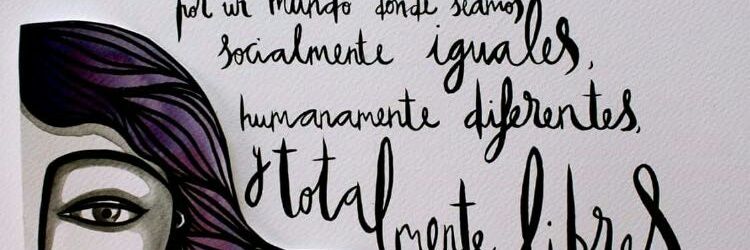 por un mundo donde seamos
socialmente iguales,
humanamente diferentes,
y totalmente libres